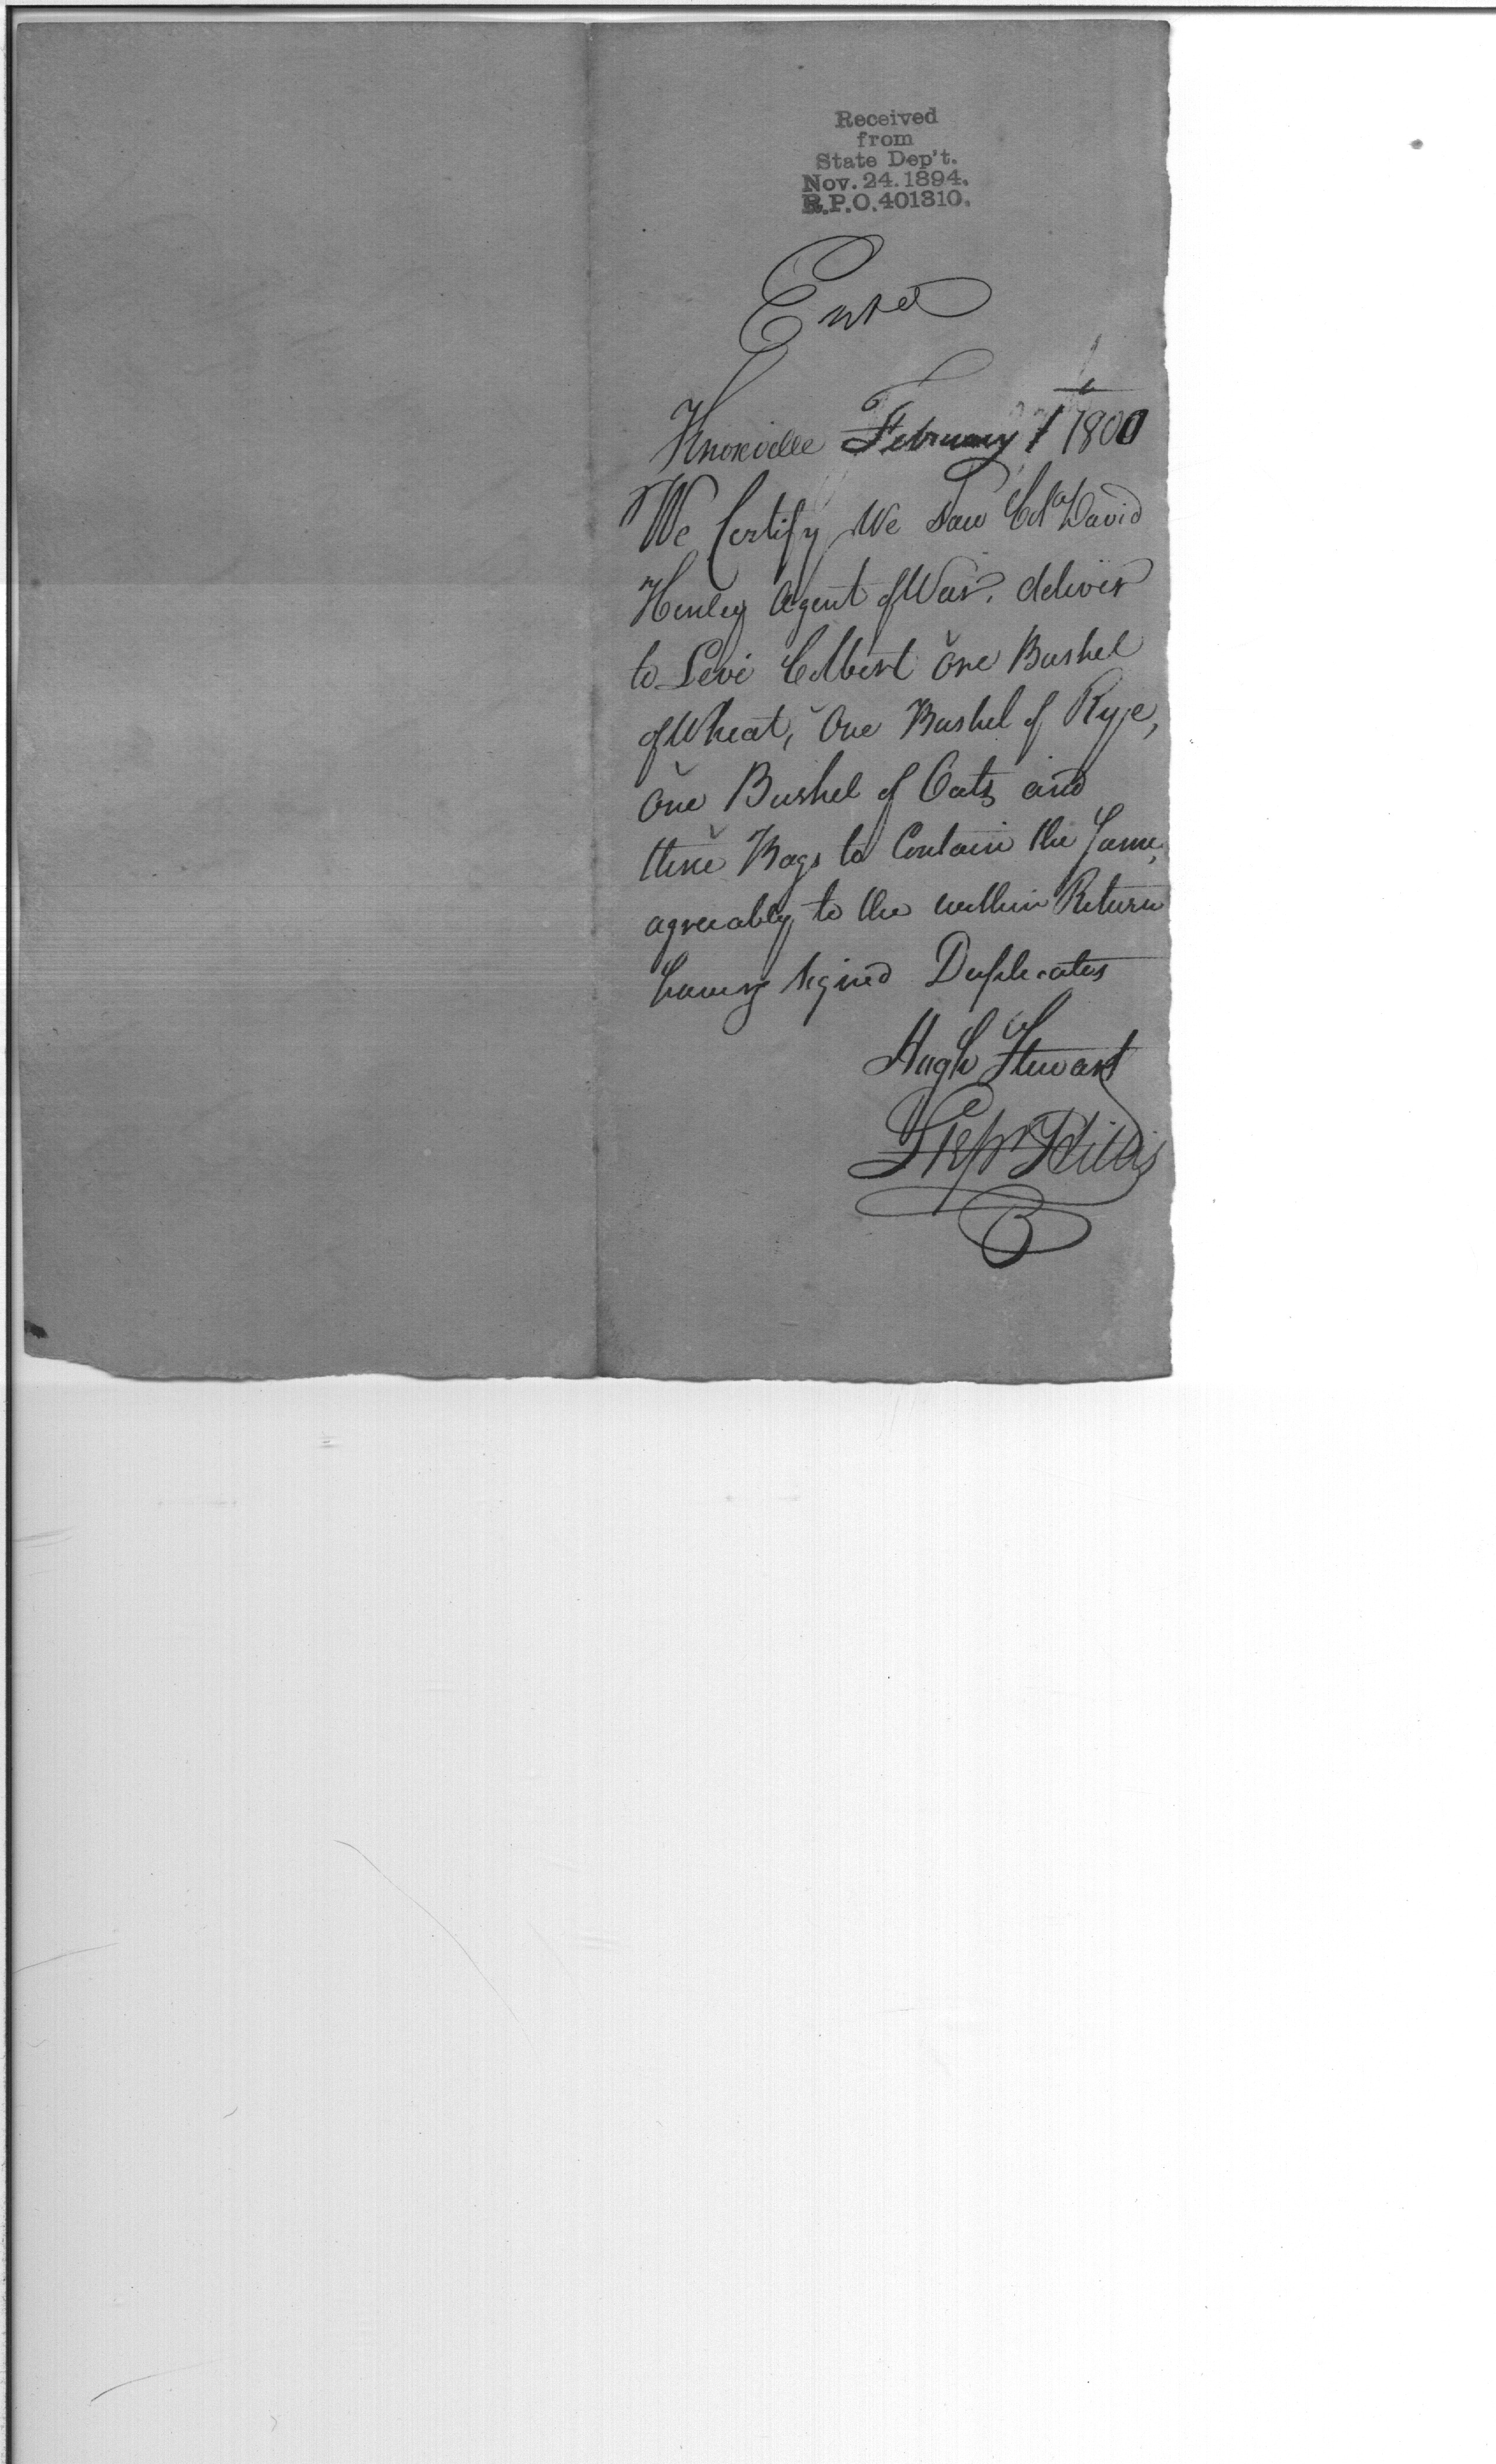 Received
from
State Dep't.
Nov. 24. 1894.
R.P.O. 401310.
Entd
Knoxville February 1 1800
We Certify We Saw Colo David
Henley Agent of War. deliver
to Levi Colbert One Bushel
of Wheat, One Bushel of Rye,
One Bushel of Oats and
three Bags to Contain the Same,
agreeably to the within Return
having Signed Duplicates
Hugh Stewart
Stepn Hillis